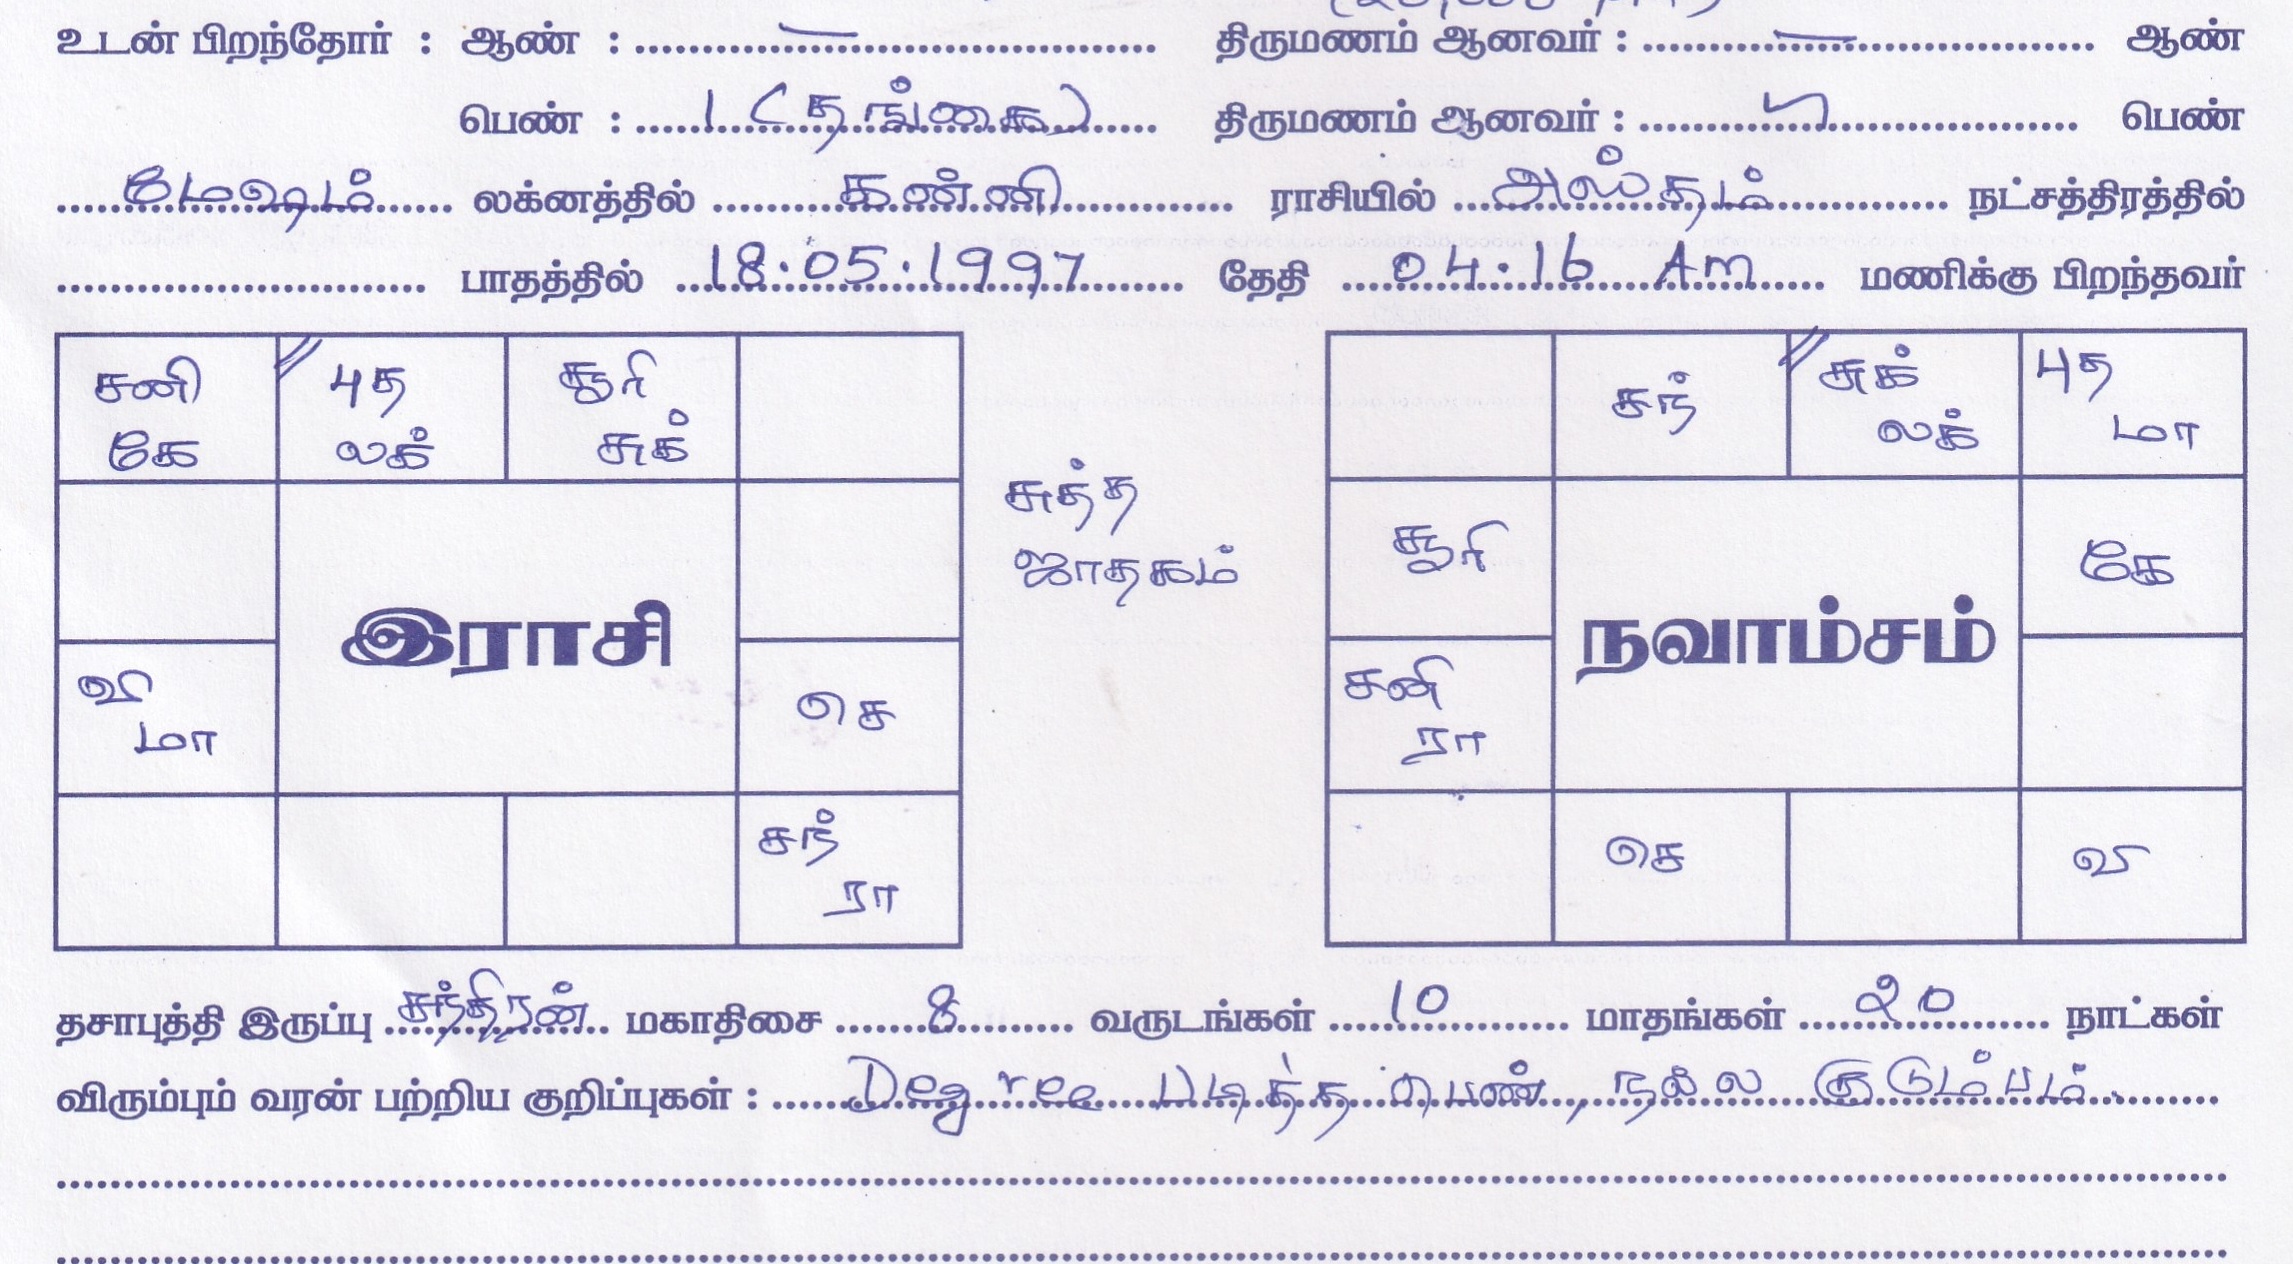 உடன் பிறந்தோர் : ஆண் : ..........—.......... திருமணம் ஆனவர் : ..........—.......... ஆண்
பெண் : ..... 1 (தங்கை) ..... திருமணம் ஆனவர் : .................... பெண்
..... மேஷம் ..... லக்னத்தில் ..... கன்னி ..... ராசியில் ..... அஸ்தம் ..... நட்சத்திரத்தில்
.................... பாதத்தில் ..... 18.05.1997 ..... தேதி ..... 04.16 Am ..... மணிக்கு பிறந்தவர்
சனி புத சூரி
கே லக் சுக்
சுத்த
ஜாதகம்
வி செ
மா
இராசி
சந்
ரா
சந் சுக் புத
லக் மா
சூரி கே
சனி
ரா
நவாம்சம்
செ வி
தசாபுத்தி இருப்பு ..... சந்திரன் ..... மகாதிசை ..... 8 ..... வருடங்கள் ..... 10 ..... மாதங்கள் ..... 20 ..... நாட்கள்
விரும்பும் வரன் பற்றிய குறிப்புகள் : ..... Degree படித்த பெண், நல்ல குடும்பம்.